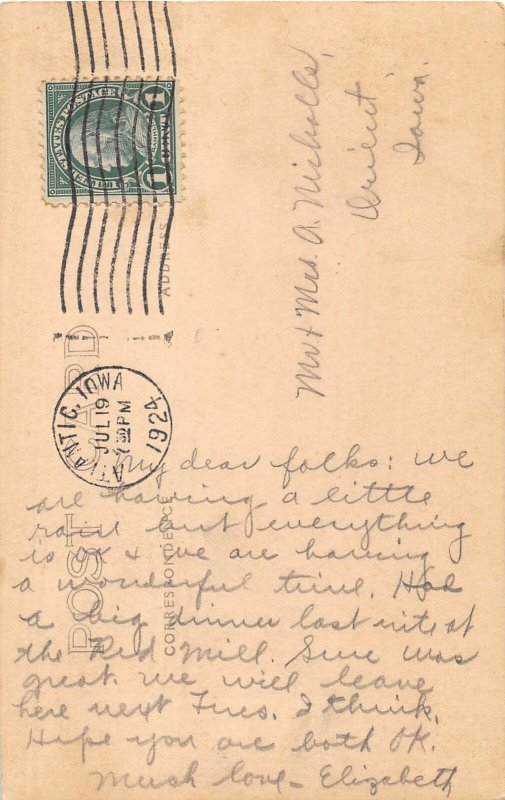 UNITED STATES POSTAGE
FRANKLIN
1 CENT 1
ATLANTIC, IOWA
JUL 19
PM
1924
POST CARD
CORRESPONDENCE
ADDRESS
Mr & Mrs. A. Nicholls,
Orient
Iowa.
My dear folks: We
are having a little
rain but everything
is ok & we are having
a wonderful time. Had
a big dinner last nite at
the Red Mill. Sure was
great. We will leave
here next Tues. I think.
Hope you are both OK.
Much love - Elizabeth